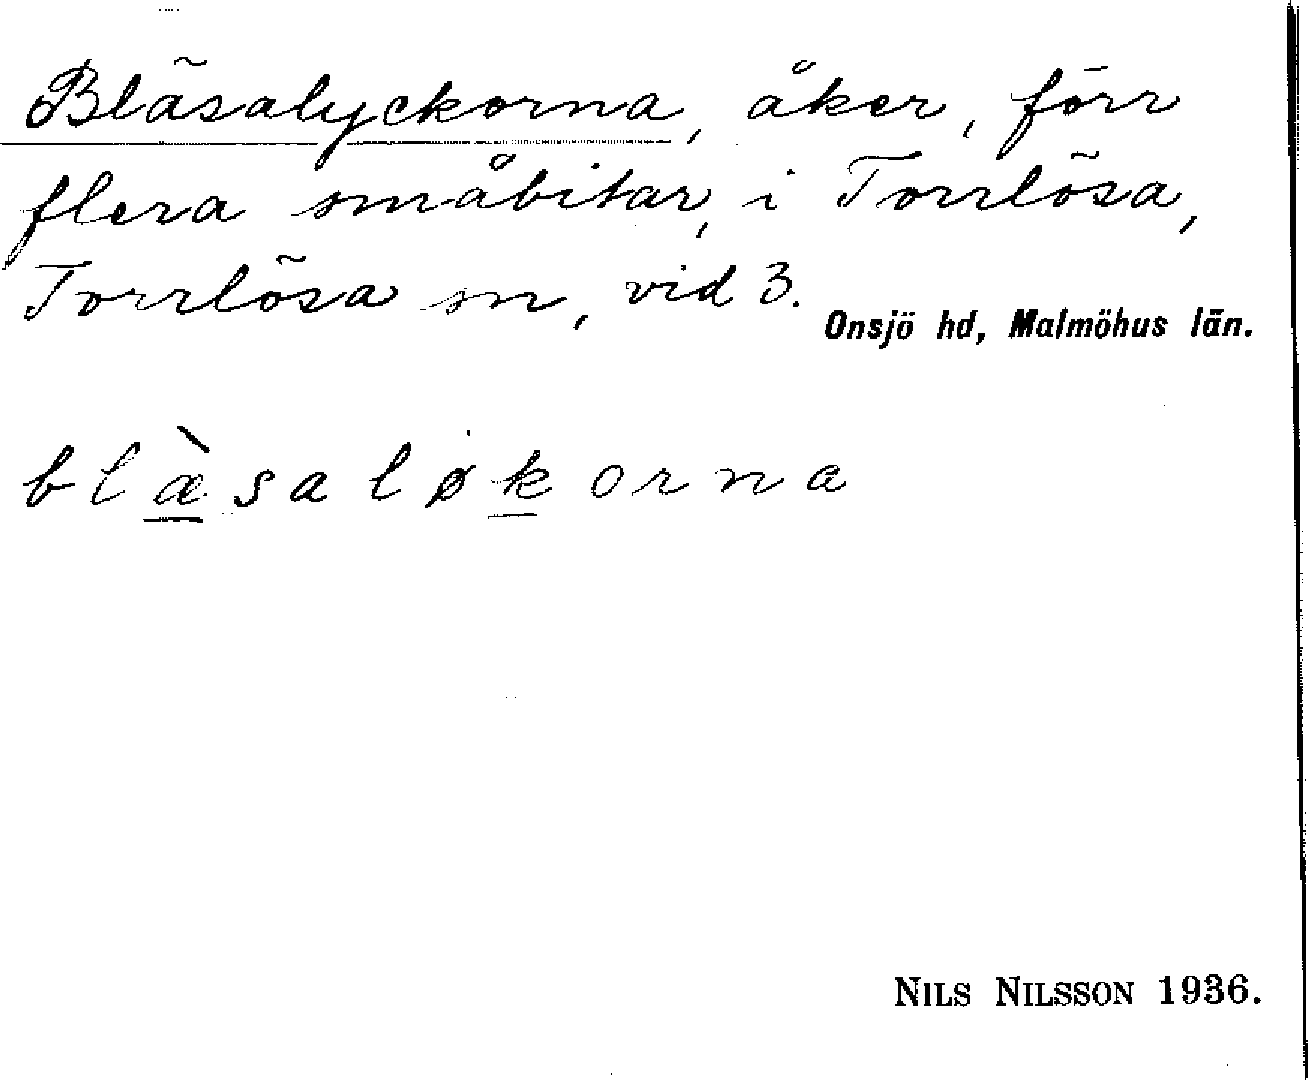 Bläsalyckorna, åker, förr
flera småbitar, i Torrlösa,
Torrlösa sn, vid 3.
Onsjö hd, Malmöhus län.
blæ̀saløkorna
NILS NILSSON 1936.